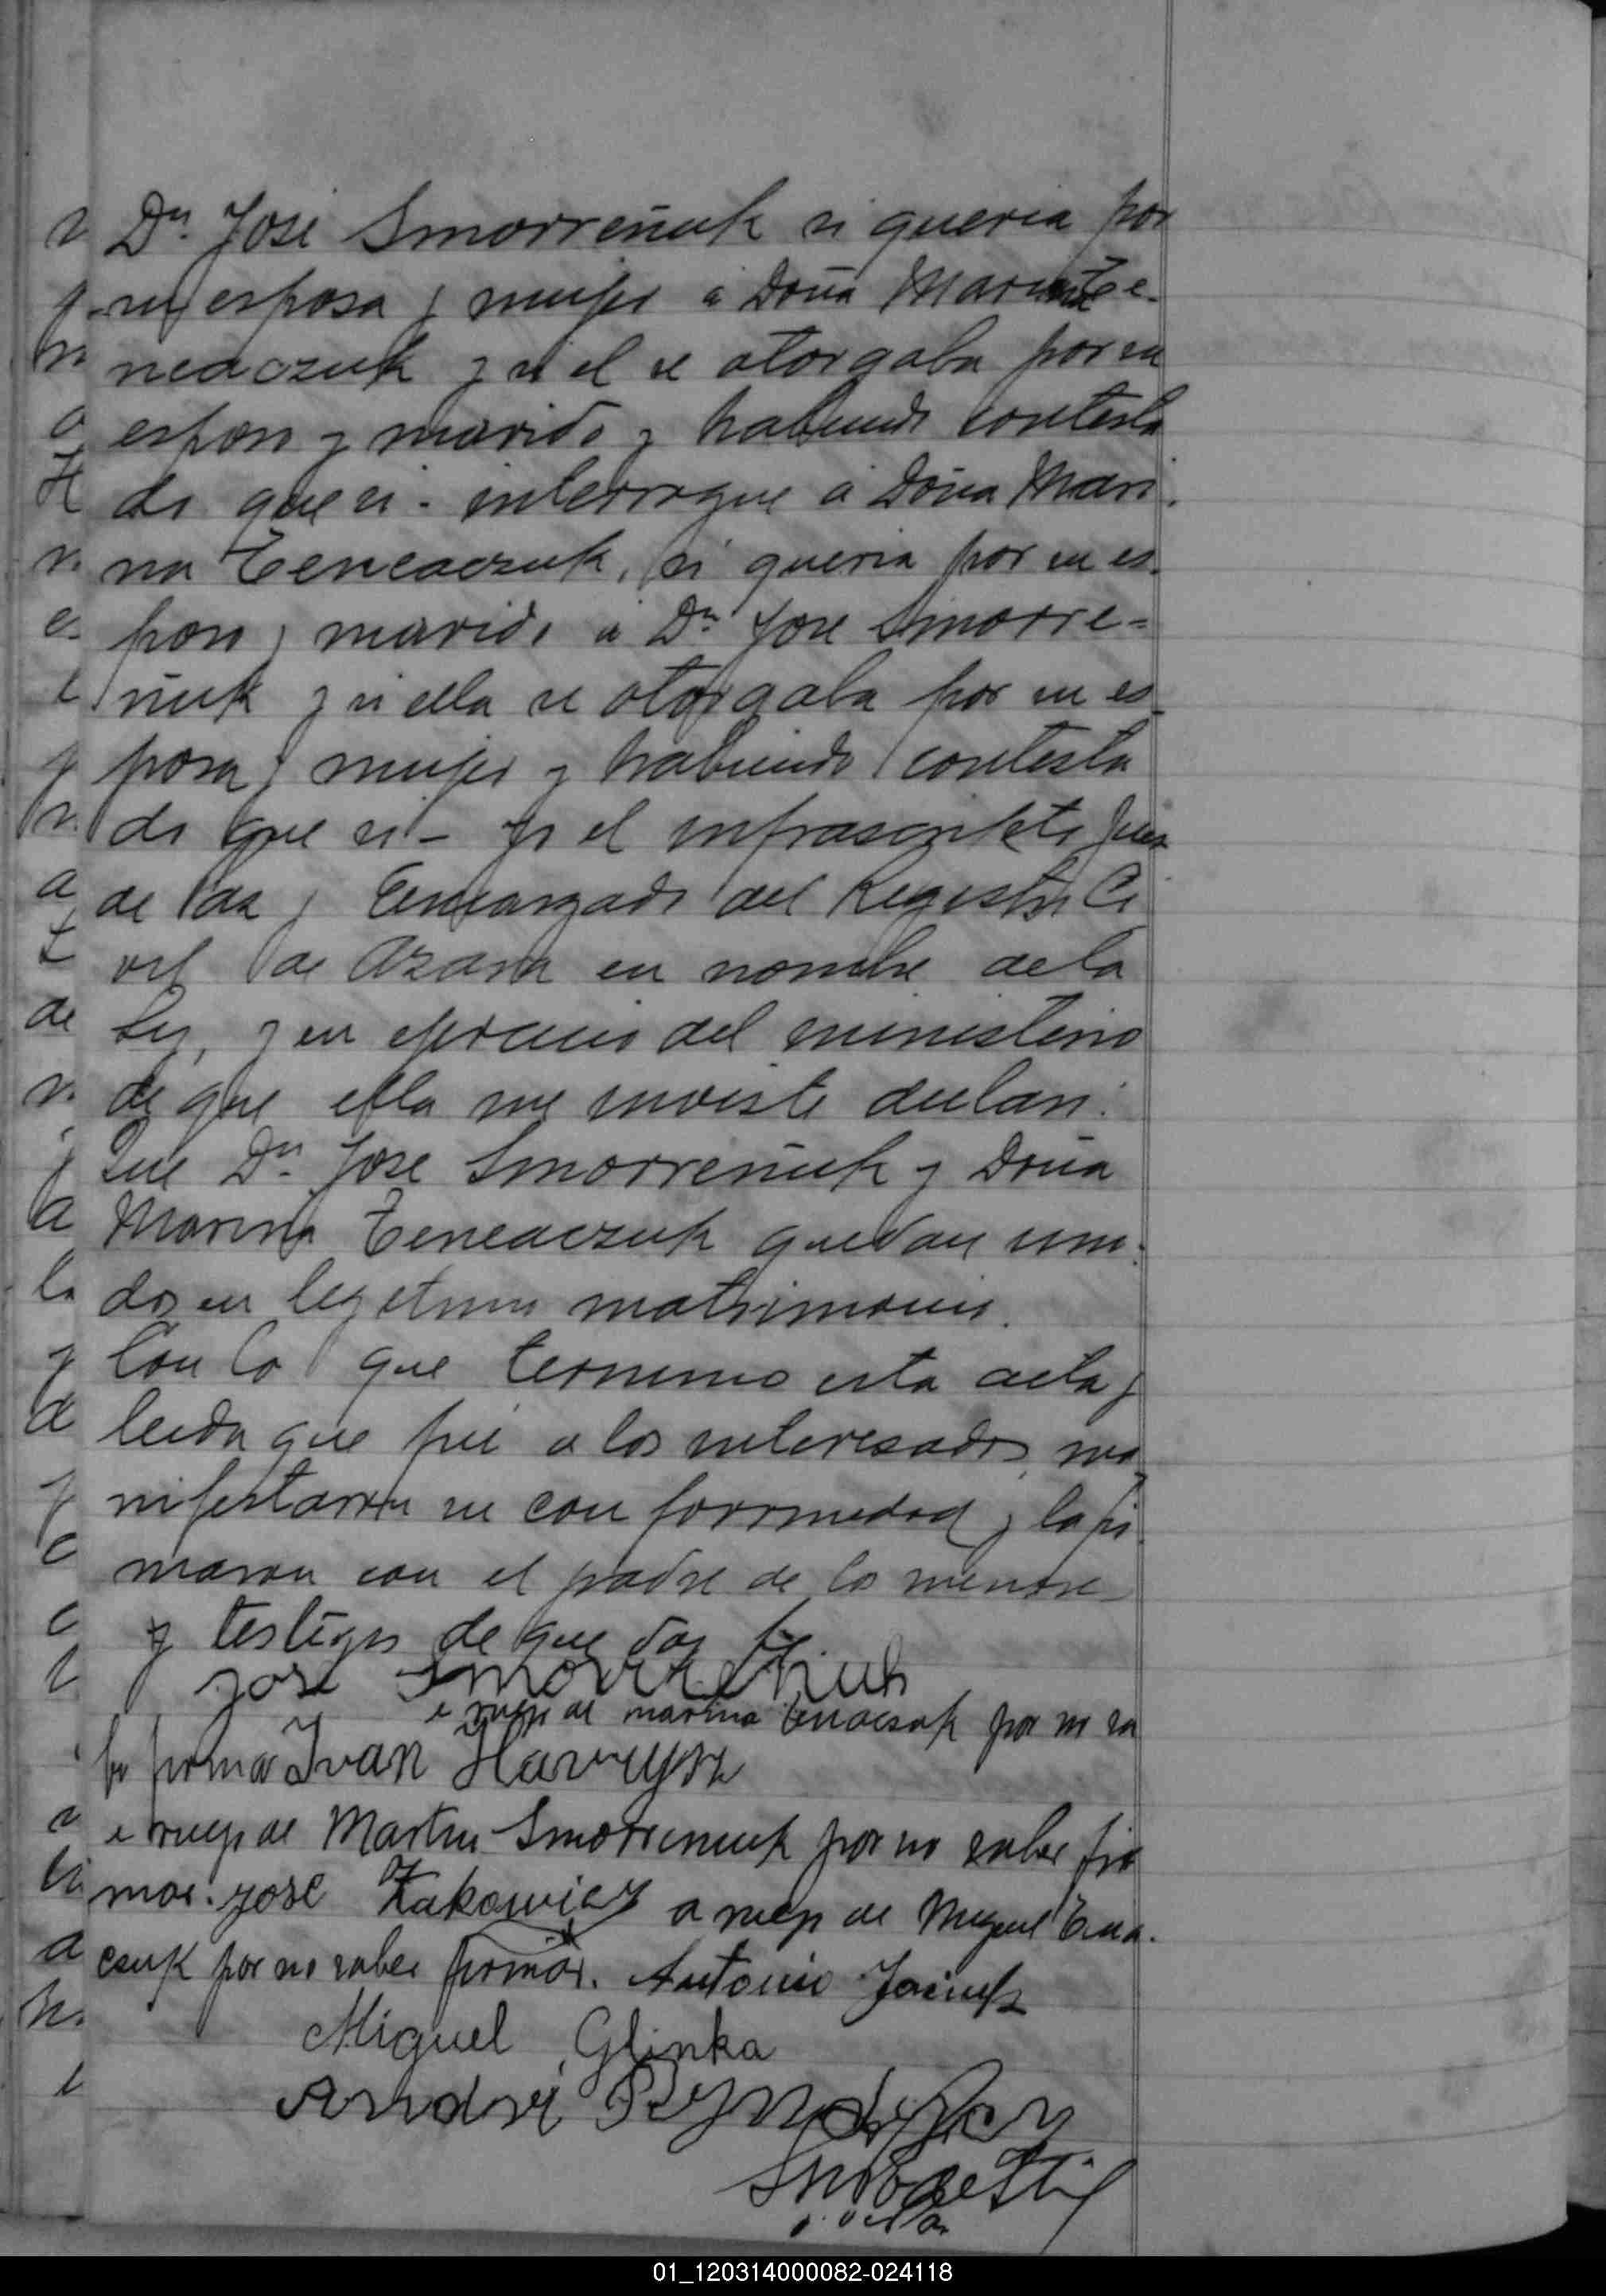 Dn. José Smorreñuk si queria por
su esposa y mujer á Doña Marina Te-
neaczuk y si el se otorgaba por su
esposo y marido y habiendo contesta
do que si - interrogue á Doña Mari
na Teneaczuk, si queria por su es-
poso y marido a Dn Jose Smorre-
ñuk y si ella se otorgaba por su es-
posa y mujer y habiendo contesta
do que si - yo el infrascripto Juez
de Paz y Encargado del Registro Ci
vil de Azara en nombre de la
Ley, y en ejercicio del ministerio
de que ella me inviste declaro:
Que Dn. Jose Smorreñuk y Doña
Marina Teneaczuk quedan uni-
dos en legitimo matrimonio.
Con lo que termino esta acta y
leida que fué a los interesados, ma
nifestaron su conformidad y la fir
maron con el padre de los menores
y testigos de que doy fé
Jose Smorreñiuk
a ruego de marina Tenacsuk por no sa
be firmar Ivan Hawrysz
a ruego de Martin Smorreniuk por no saber fir
mar. José Zakowicz a ruego de Miguel Tena-
csuk por no saber firmar. Antonio
Miguel Glinka
Andrej